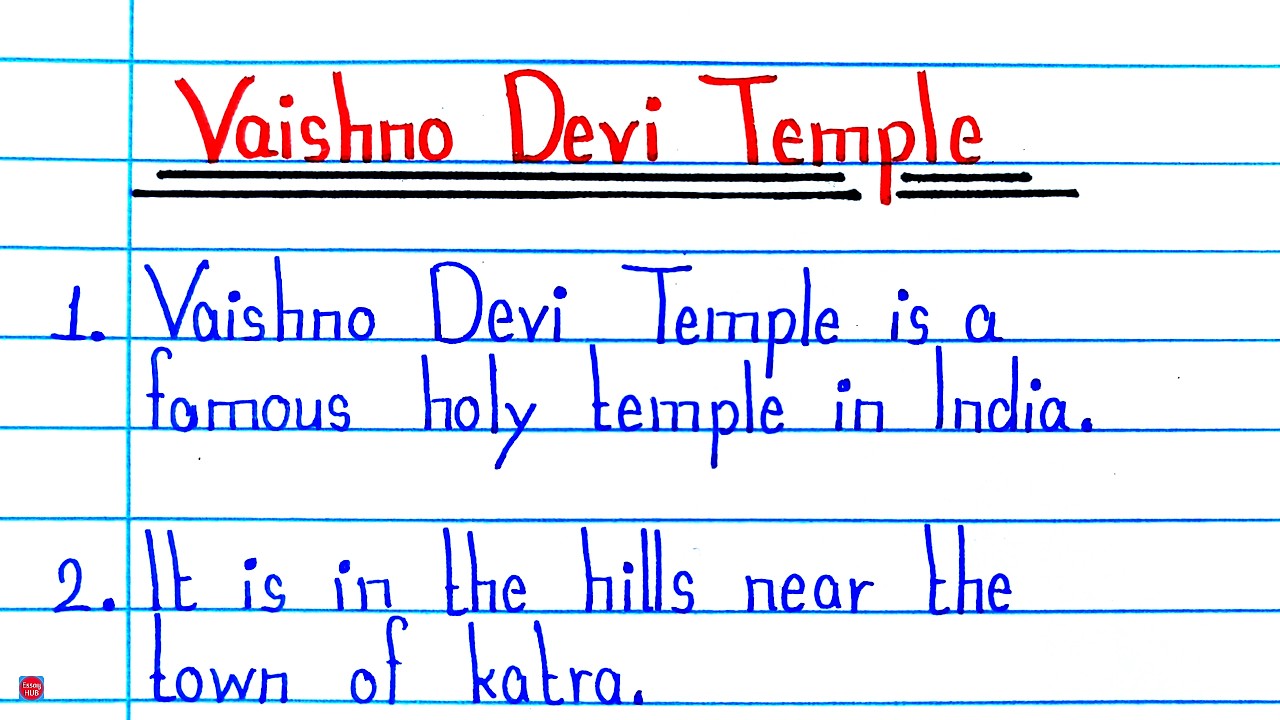 Vaishno Devi Temple
1. Vaishno Devi Temple is a
famous holy temple in India.
2. It is in the hills near the
town of katra.
Essay
HUB